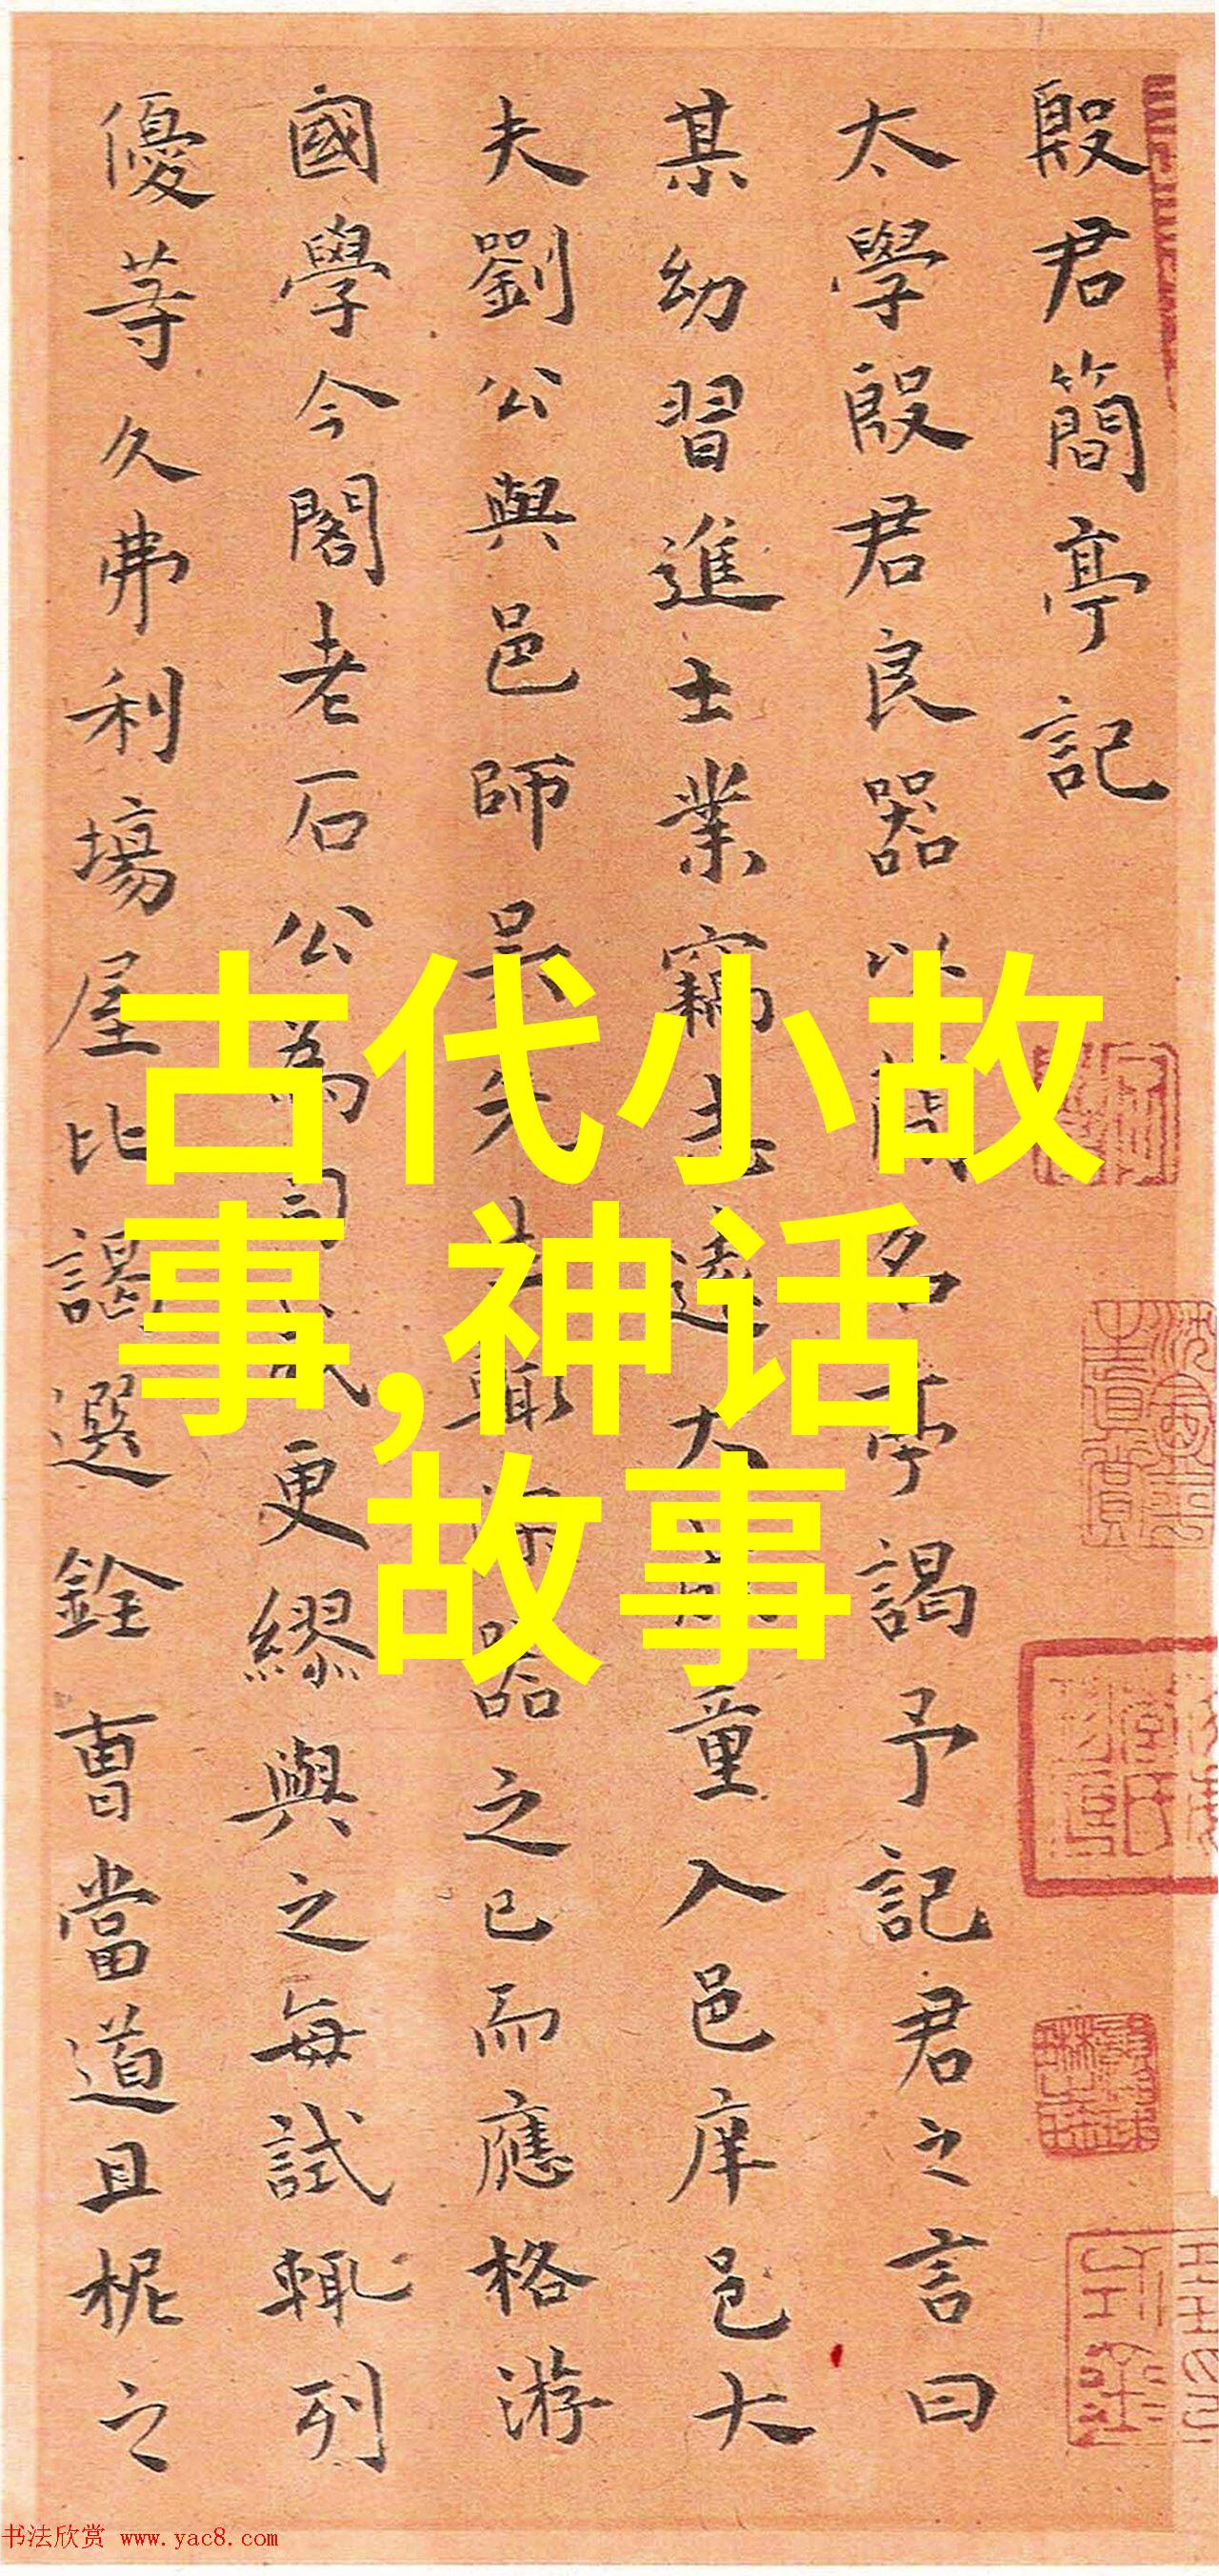 殷君簡亭記
太學殷君良器以簡名亭謁予記君之言曰
某幼習進士業竊志遠大成童入邑庠邑大
夫劉公與邑師吳先生輒器之已而應格游
國學今閣老石公為司成更繆與之每試輒列
優等久弗利場屋比謁選銓曹當道且柅之
古代小故
事,神话
故事
书法欣赏 www.yac8.com